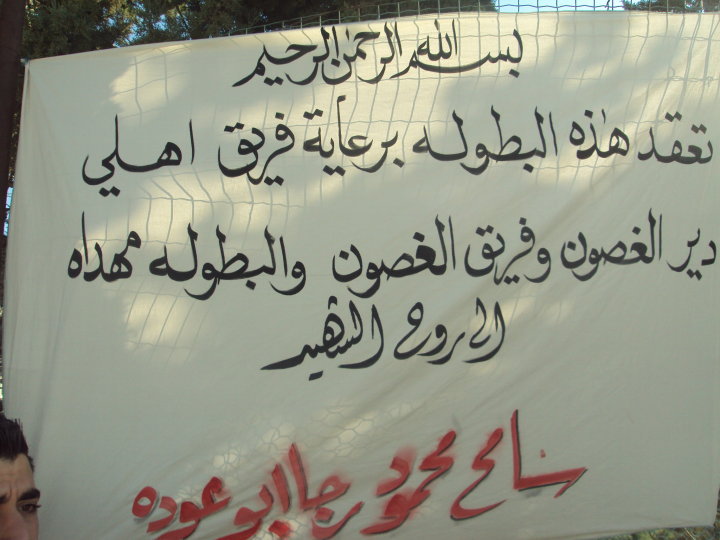 بسم الله الرحمن الرحيم
تعقد هذه البطوله برعاية فريق اهلي
دير الغصون وفريق الغصون والبطوله مهداه
الى روح الشهيد
سامح محمود رجا ابو عوده